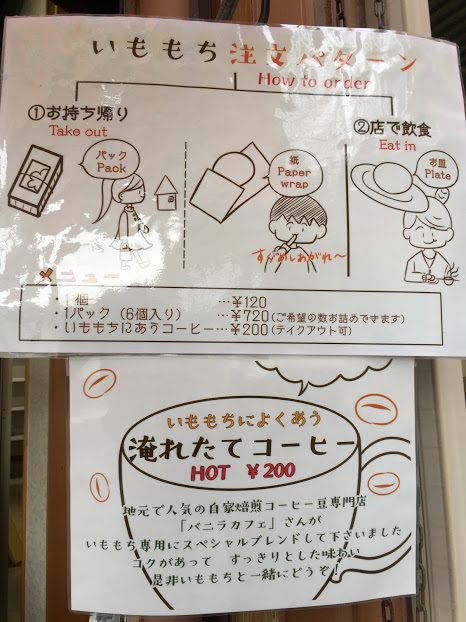 いももち 注文パターン
How to order
①お持ち帰り
Take out
②店で飲食
Eat in
パック
Pack
紙
Paper
wrap
お皿
Plate
すぐめしあがれ〜
メニュー
・1個 …¥120
・1パック(6個入り) …¥720(ご希望の数お詰めできます)
・いももちにあうコーヒー…¥200(テイクアウト可)
いももちによくあう
淹れたてコーヒー
HOT ¥200
地元で人気の自家焙煎コーヒー豆専門店
「バニラカフェ」さんが
いももち専用にスペシャルブレンドして下さいました
コクがあって すっきりとした味わい
是非いももちと一緒にどうぞ!